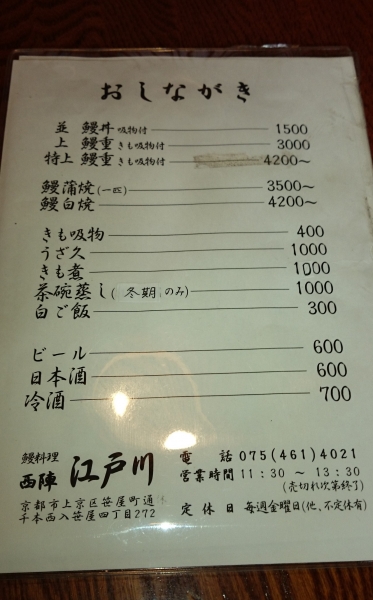 おしながき
並 鰻丼 吸物付 1500
上 鰻重 きも吸物付 3000
特上 鰻重 きも吸物付 4200～
鰻蒲焼(一匹) 3500～
鰻白焼 4200～
きも吸物 400
うざ久 1000
きも煮 1000
茶碗蒸し(冬期のみ) 1000
白ご飯 300
ビール 600
日本酒 600
冷酒 700
鰻料理
西陣 江戸川
京都市上京区笹屋町通
千本西入笹屋四丁目272
電話 075(461)4021
営業時間 11:30～13:30
(売切れ次第終了)
定休日 毎週金曜日(他、不定休有)